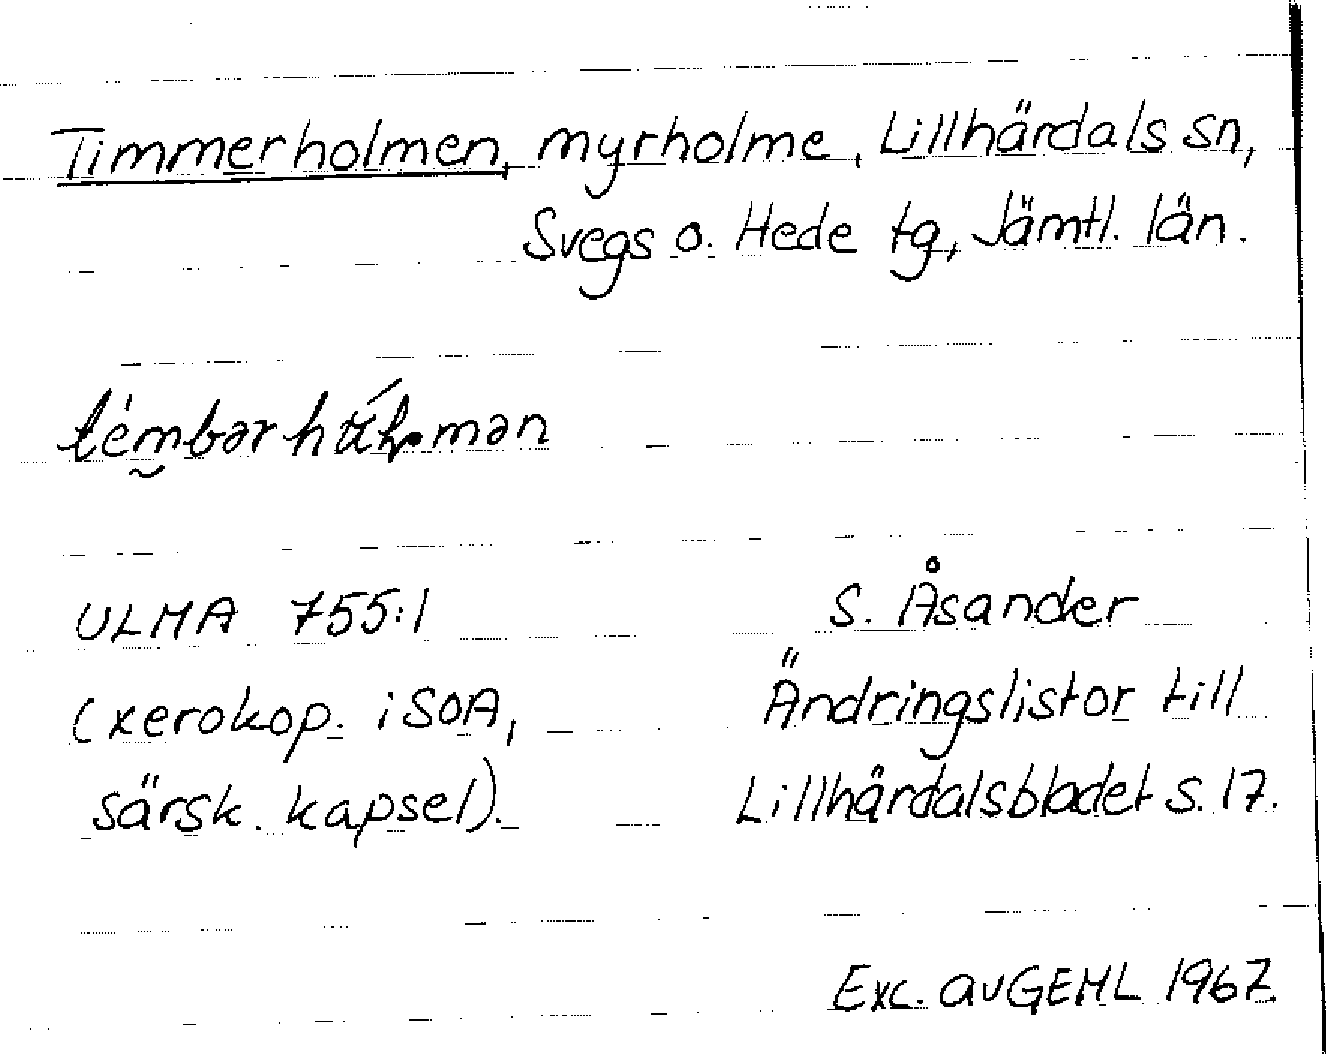 Timmerholmen, myrholme, Lillhärdals sn,
Svegs o. Hede tg, Jämtl. län.
ULMA 755:1
(xerokop. i SOA,
särsk. kapsel).
S. Åsander
Ändringslistor till
Lillhärdalsbladet s. 17.
Exc. av GEHL 1967